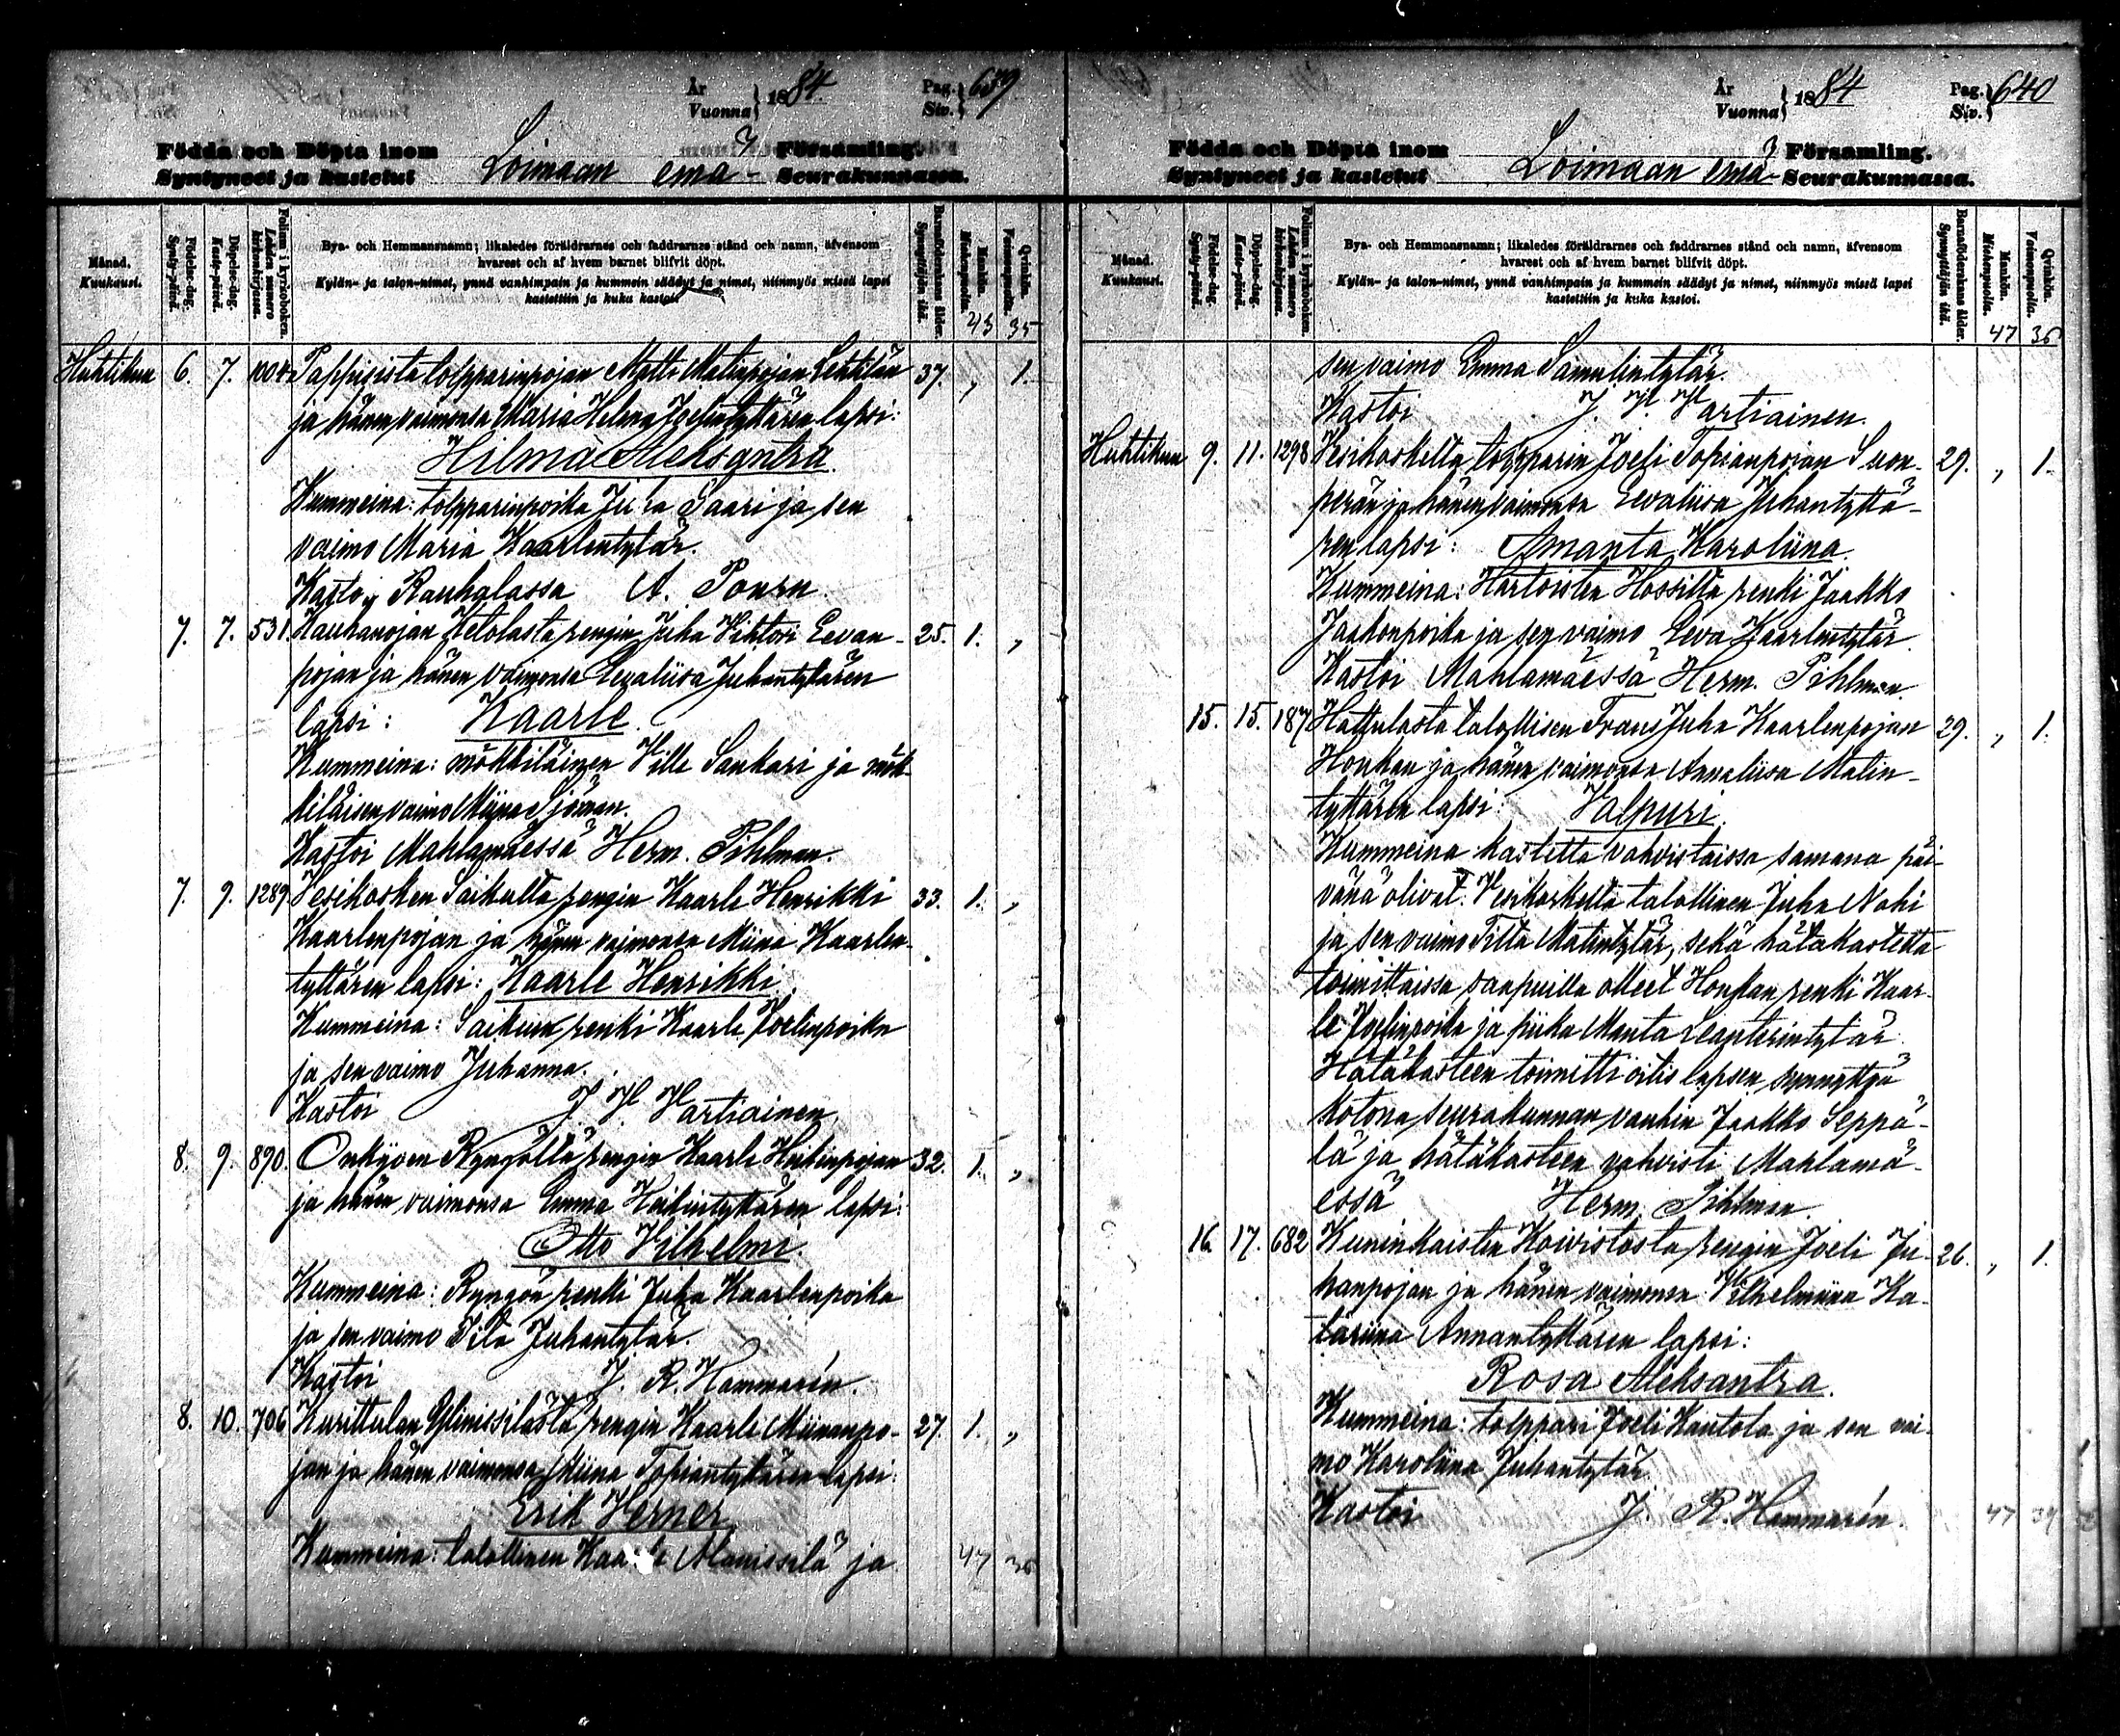 År
Vuonna } 1884.
Pag.
Siv. } 639
Födda och Döpta inom
Syntyneet ja kastetut
Loimaan emä-
Församling.
Seurakunnassa.
Månad.
Kuukausi.
Födelse-dag.
Synty-päivä.
Döpelse-dag.
Kaste-päivä.
Folium i kyrkoboken.
Lehden numero kirkonkirjassa.
Bya- och Hemmansnamn; likaledes föräldrarnes och faddrarnes stånd och namn, äfvensom
hvarest och af hvem barnet blifvit döpt.
Kylän- ja talon-nimet, ynnä vanhimpain ja kummein säädyt ja nimet, niinmyös missä lapsi
kastettiin ja kuka kastoi.
Barnföderskans ålder.
Synnyttäjän ikä.
Mankön.
Miehenpuolta.
Qvinkön.
Vaimonpuolta.
43 35
Huhtikuu 6. 7. 1004 Pappisista tolpparinpojan Matti Matinpojan Lehtilän 37. „ 1.
ja hänen vaimonsa Maria Helena Joelintyttären lapsi:
Hilma Aleksantra.
Kummeina: tolpparinpoika Juha Saari ja sen
vaimo Maria Kaarlentytär.
Kastoi Rauhalassa A. Ponsu
7. 7. 531. Kauhanojan Ketolasta rengin Juha Vihtori Eevan- 25. 1. „
pojan ja hänen vaimonsa Eevaliisa Juhantyttären
lapsi: Kaarle.
Kummeina: mökkiläinen Ville Sankari ja mök-
kiläisen vaimo Miina Sjöman.
Kastoi Mahlamäessä Herm. Pihlman.
7. 9. 1289. Vesikosken Saikulta rengin Kaarle Henrikki 33. 1. „
Kaarlenpojan ja hänen vaimonsa Miina Kaarlen-
tyttären lapsi: Kaarle Henrikki.
Kummeina: Saikun renki Kaarle Joelinpoika
ja sen vaimo Juhanna.
Kastoi J. H. Hartiainen
8. 9. 890. Onkijoen Ryngöltä rengin Kaarle Heikinpojan 32. 1. „
ja hänen vaimonsa Emma Heikintyttären lapsi:
Otto Vilhelmi.
Kummeina: Ryngön renki Juha Kaarlenpoika
ja sen vaimo Tilta Juhantytär.
Kastoi J. R. Hammarén.
8. 10. 706 Kurittulan Ylinissilästä rengin Kaarle Miinanpo- 27. 1. „
jan ja hänen vaimonsa Miina Topiantyttären lapsi:
Erik Verner
Kummeina: talollinen Kaarle Alanissilä ja
47 36
År
Vuonna } 1884
Pag.
Siv. } 640
Födda och Döpta inom
Syntyneet ja kastetut
Loimaan emä-
Församling.
Seurakunnassa.
Månad.
Kuukausi.
Födelse-dag.
Synty-päivä.
Döpelse-dag.
Kaste-päivä.
Folium i kyrkoboken.
Lehden numero kirkonkirjassa.
Bya- och Hemmansnamn; likaledes föräldrarnes och faddrarnes stånd och namn, äfvensom
hvarest och af hvem barnet blifvit döpt.
Kylän- ja talon-nimet, ynnä vanhimpain ja kummein säädyt ja nimet, niinmyös missä lapsi
kastettiin ja kuka kastoi.
Barnföderskans ålder.
Synnyttäjän ikä.
Mankön.
Miehenpuolta.
Qvinkön.
Vaimonpuolta.
47 36
sen vaimo Emma Samulintytär.
Kastoi J. H. Hartiainen.
Huhtikuu 9. 11. 1298 Vesikoskelta tolpparin Joeli Topianpojan Suon- 29. „ 1.
perän ja hänen vaimonsa Eevaliisa Juhantyttä-
ren lapsi: Amanta Karoliina.
Kummeina: Hartoisten Hossilta renki Jaakko
Jaakonpoika ja sen vaimo Eeva Kaarlentytär.
Kastoi Mahlamäessä Herm. Pihlman.
15. 15. 187 Hattulasta talollisen Frans Juha Kaarlenpojan 29. „ 1.
Honkan ja hänen vaimonsa Annaliisa Matin-
tyttären lapsi: Valpuri.
Kummeina kastetta vahvistaissa samana päi-
vänä olivat: Vesikoskelta talollinen Juha Nohi
ja sen vaimo Tilta Matintytär, sekä hätäkastetta
toimittaissa saapuilla olleet Honkan renki Kaar-
le Joelinpoika ja piika Manta Leanterintytär.
Hätäkasteen toimitti oitis lapsen synnyttyä
kotona seurakunnan vanhin Jaakko Seppä-
lä ja hätäkasteen vahvisti Mahlamä-
essä Herm. Pihlman.
16. 17. 682 Kuninkaisten Koivistosta rengin Joeli Ju- 26. „ 1.
hanpojan ja hänen vaimonsa Vilhelmiina Ka-
tariina Annantyttären lapsi:
Rosa Aleksantra.
Kummeina: tolppari Joeli Kantola ja sen vai-
mo Karoliina Juhantytär.
Kastoi J. R. Hammarén.
47 39